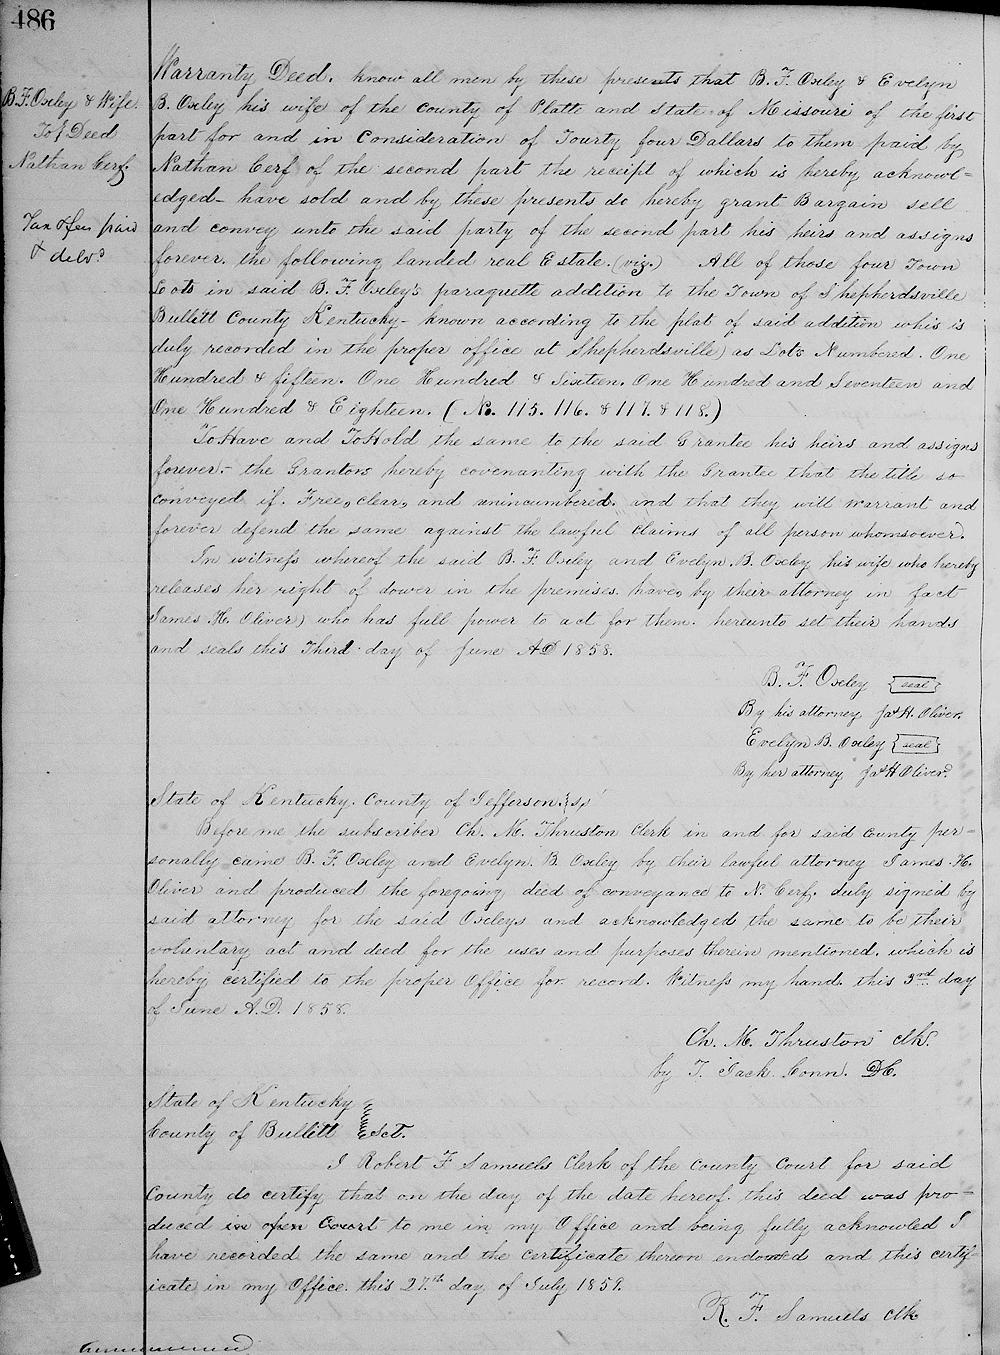 486
B. F. Oxley & Wife.
To } Deed
Nathan Cerf.
Tax & fee paid
& deld
Warranty Deed. Know all men by these presents that B. F. Oxley & Evelyn
B. Oxley his wife of the County of Platte and State of Missouri of the first
part for and in Consideration of Fourty four Dollars to them paid by
Nathan Cerf of the second part the receipt of which is hereby acknowl-
edged- have sold and by these presents do hereby grant Bargain sell
and convey unto the said party of the second part his heirs and assigns
forever. the following landed real Estate. (viz.) All of those four Town
Lots in said B. F. Oxley's paraquette addition to the Town of Shepherdsville
Bullitt County Kentucky- known according to the plat of said addition whis is
duly recorded in the proper office at Shepherdsville) as Lots Numbered. One
Hundred & fifteen. One Hundred & Sixteen. One Hundred and Seventeen and
One Hundred & Eighteen. (No. 115. 116. & 117. & 118.)
To Have and To Hold the same to the said Grantee his heirs and assigns
forever.- the Grantors hereby covenanting with the Grantee that the title so
conveyed if. Free, clear, and unincumbered. and that they will warrant and
forever defend the same against the lawful Claims of all person whomsoever.
In witness whereof the said B. F. Oxley and Evelyn. B. Oxley his wife who hereby
releases her right of dower in the premises. have, by their attorney in fact
James H. Oliver) who has full power to act for them. hereunto set their hands
and seals this Third day of June AD 1858.
B. F. Oxley {seal}
By his attorney Jas H. Oliver.
Evelyn B. Oxley {seal}
By her attorney Jas H Oliver.
State of Kentucky. County of Jefferson. } ss
Before me the subscriber Ch. M. Thruston Clerk in and for said county per-
sonally came B. F. Oxley and Evelyn. B. Oxley by their lawful attorney James. H.
Oliver and produced the foregoing deed of conveyance to N. Cerf. duly signed by
said attorney for the said Oxleys and acknowledged the same to be their
voluntary act and deed for the uses and purposes therein mentioned. which is
hereby certified to the proper Office for record. Witness my hand. this 3rd day
of June A.D. 1858.
Ch. M. Thruston clk.
by T. Jack Conn. DC.
State of Kentucky
County of Bullitt } Sct.
I Robert F. Samuels Clerk of the County Court for said
County do certify that on the day of the date hereof. this deed was pro-
duced in open Court to me in my Office and being fully acknowled I
have recorded the same and the certificate thereon endorsed and this certif-
icate in my Office. this 27th day of July 1859.
R. F. Samuels clk